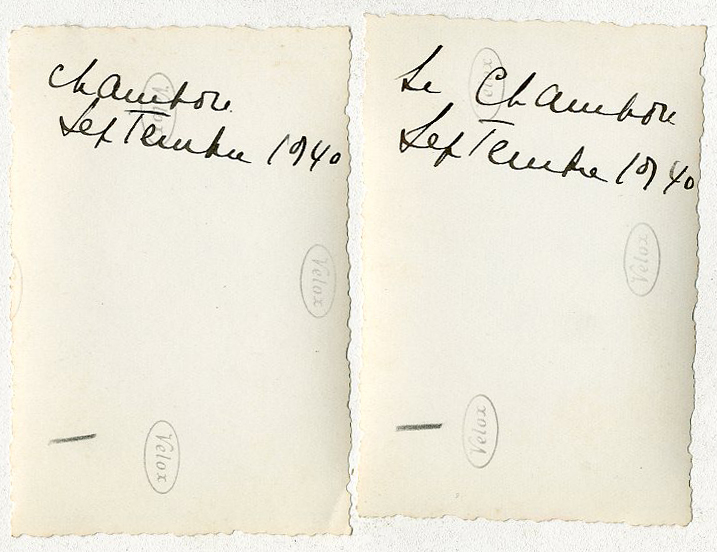 Chambon
Septembre 1940
Velox
Velox
Velox
Le Chambon
Septembre 1940
Velox
Velox
Velox